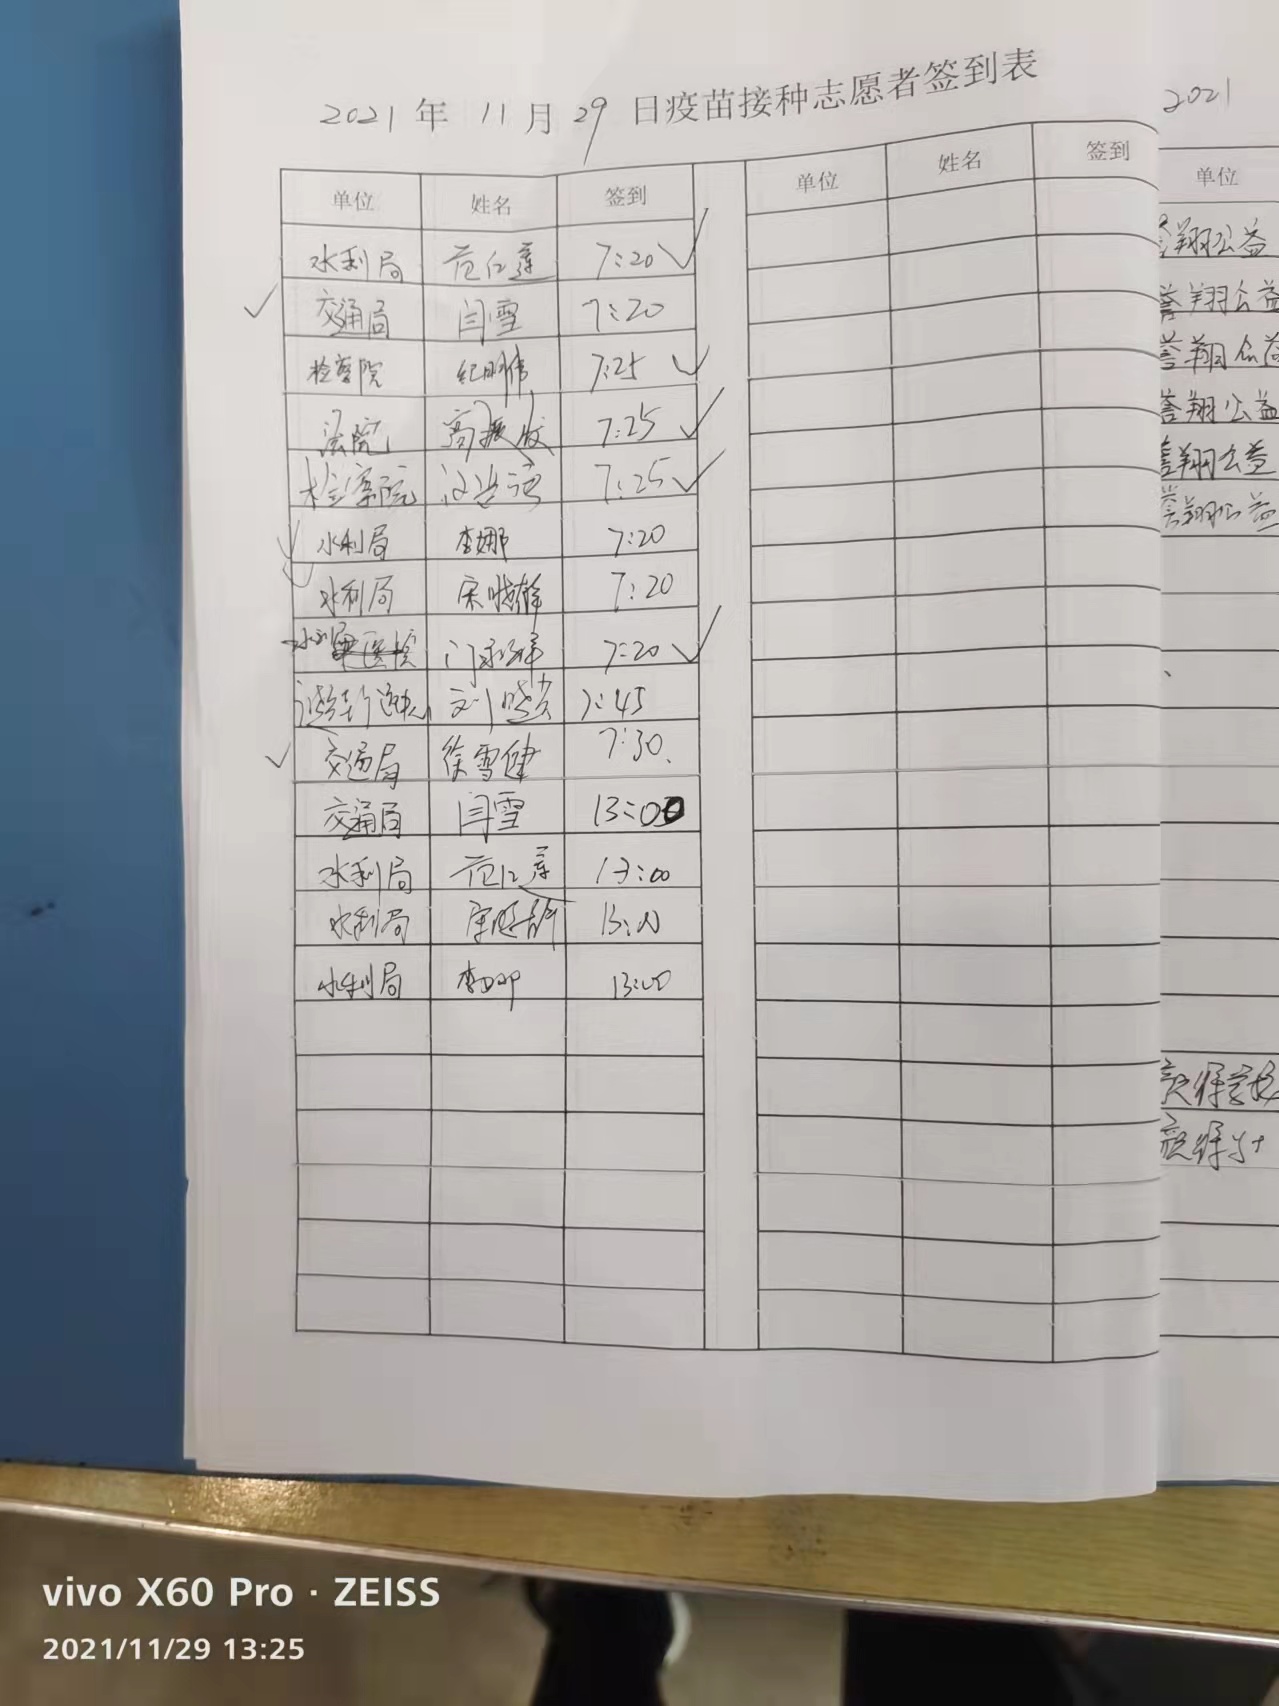 2021年11月29日疫苗接种志愿者签到表
单位 姓名 签到 单位 姓名 签到
水利局 范红莲 7:20
交通局 闫雪 7:20
检察院 纪明伟 7:25
法院 高振 7:25
检察院 7:25
水利局 李娜 7:20
水利局 宋晓静 7:20
水利局 7:20
刘晓 7:45
交通局 徐雪健 7:30
交通局 闫雪 13:00
水利局 范红莲 13:00
水利局 宋晓静 13:00
水利局 李娜 13:00
2021
单位
誉翔公益
誉翔公益
誉翔公益
誉翔公益
誉翔公益
誉翔公益
vivo X60 Pro · ZEISS
2021/11/29 13:25